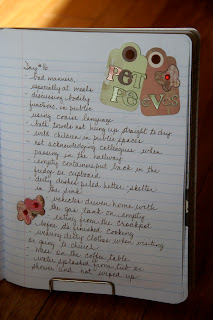 Day #16
PET
PEEVES
- bad manners,
especially at meals
- discussing bodily
functions in public
- using coarse language
- bath towels not hung up straight to dry
- wild children in public spaces
- not acknowledging colleagues when
passing in the hallway
- empty containers put back in the
fridge or cupboard
- dirty dishes piled helter skelter
in the sink
- vehicles driven home with
the gas tank on empty
- eating from the crockpot
before its finished cooking
- wearing dirty clothes when visiting
or going to church
- mess on the coffee table
- water splashed from tub or
shower and not wiped up